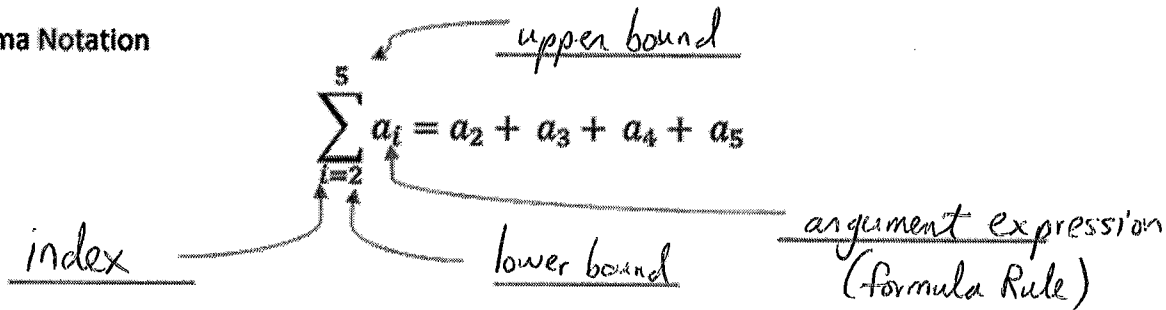 ma Notation
upper bound
5
∑ aᵢ = a₂ + a₃ + a₄ + a₅
i=2
index
lower bound
argument expression
(formula Rule)